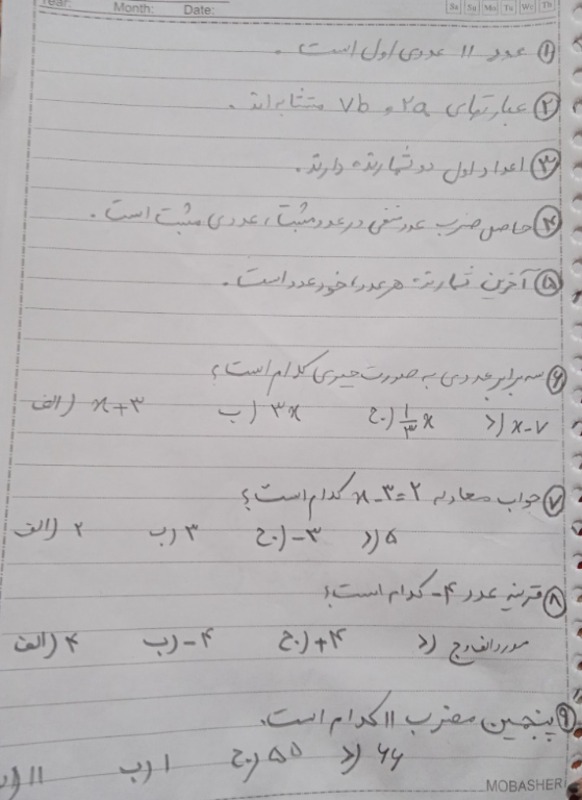 Year: Month: Date: Sa Su Mo Tu We Th
۱) عدد ۱۱ عددی اول است.
۲) عبارتهای ۲a و ۷b متشابه‌اند.
۳) اعداد اول دو شمارنده دارند.
۴) حاصل ضرب عدد منفی در عدد مثبت، عددی مثبت است.
۵) آخرین شمارنده هر عدد، خود عدد است.
۶) سه برابر عددی به صورت جبری کدام است؟
الف) x+۳ ب) ۳x ج) ۱/۳ x د) x-۷
۷) جواب معادله x-۳=۲ کدام است؟
الف) ۲ ب) ۳ ج) -۳ د) ۵
۸) قرینه عدد ۴- کدام است؟
الف) ۴ ب) -۴ ج) +۴ د) مورد الف و ج
۹) پنجمین مضرب ۱۱ کدام است.
۱۱ ب) ۱ ج) ۵۵ د) ۶۶
MOBASHER